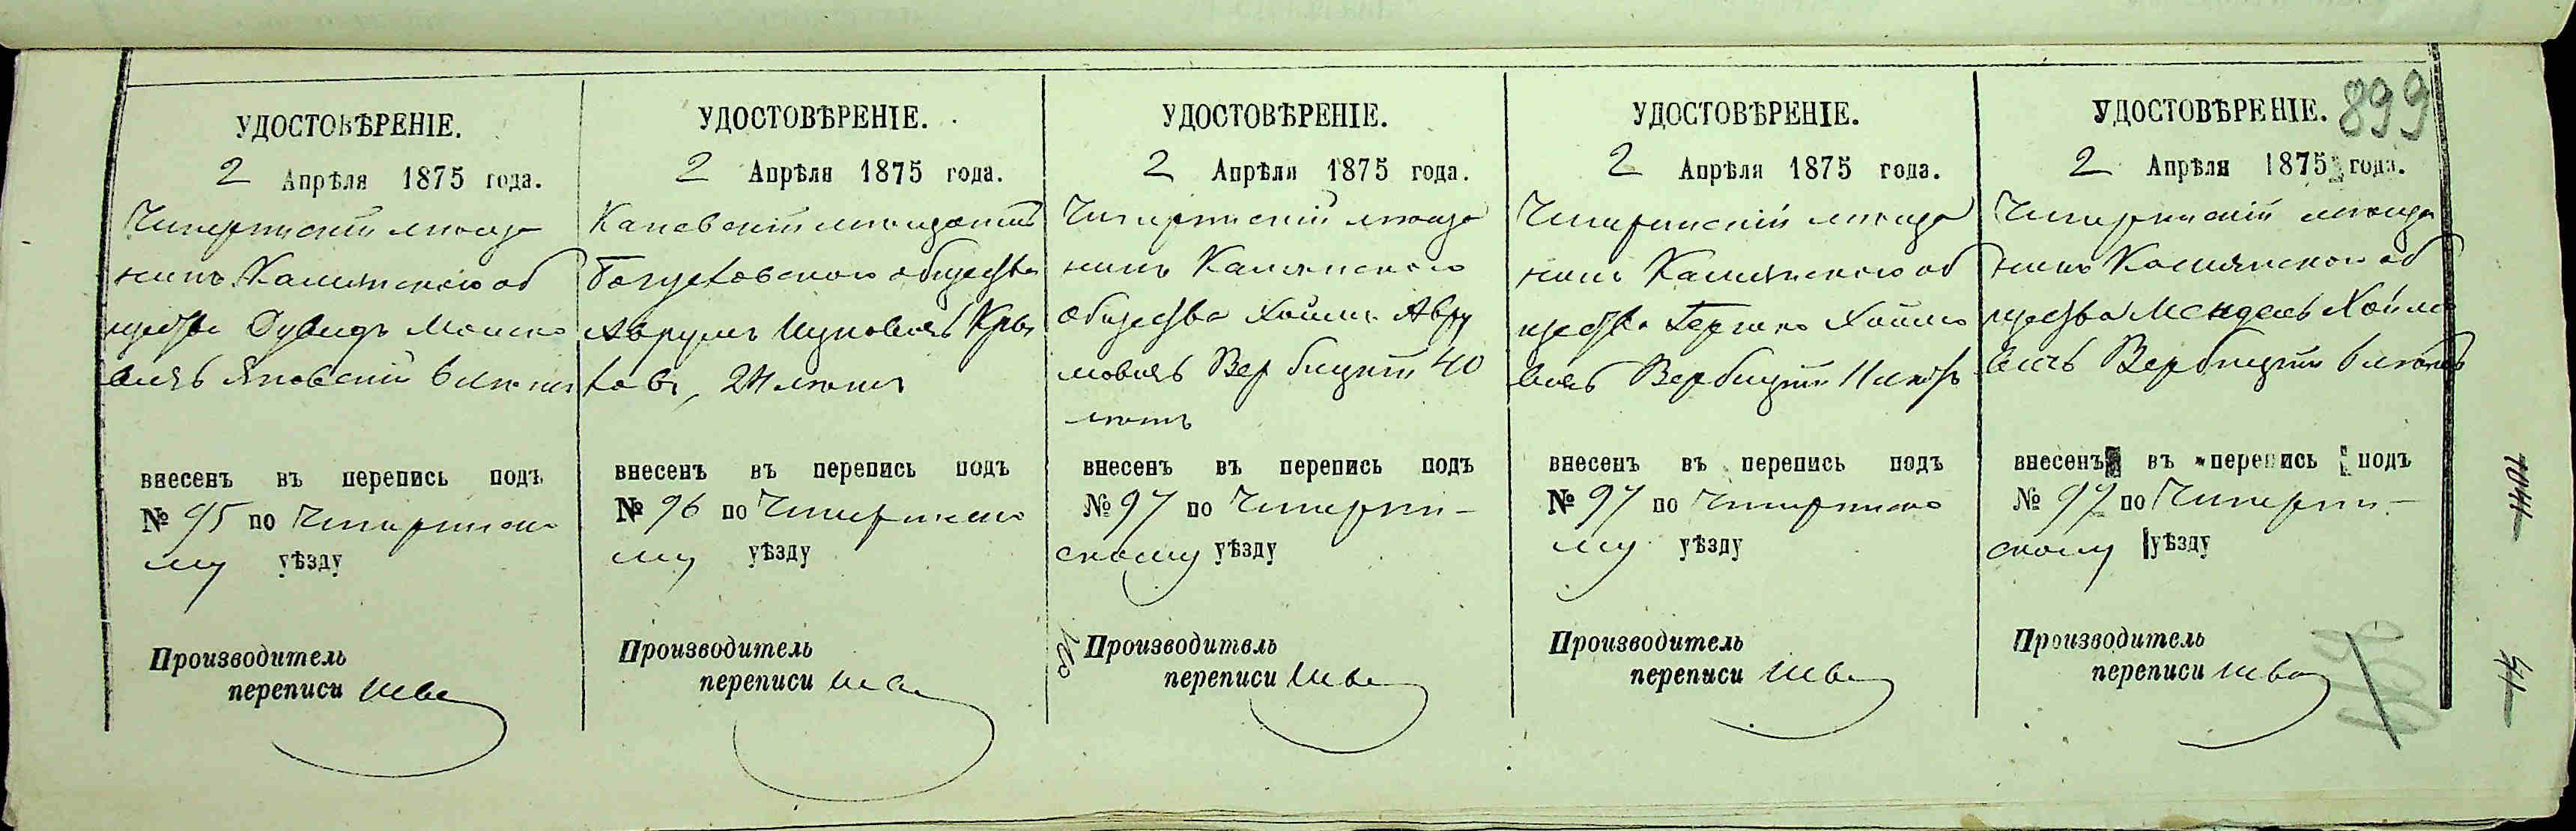 899
УДОСТОВѢРЕНІЕ.
2 Апрѣля 1875 года.
Чигиринскій мѣща
нинъ Камянского об
щества Дувидъ Мошко
вичъ Яновскій 6 лѣтъ
внесенъ въ перепись подъ
№ 95 по Чигиринско
му уѣзду
Производитель
переписи
УДОСТОВѢРЕНІЕ.
2 Апрѣля 1875 года.
Каневскій мѣщанинъ
Богуславского общества
Аврумъ Ицковичъ
24 лѣтъ
внесенъ въ перепись подъ
№ 96 по Чигиринско
му уѣзду
Производитель
переписи
УДОСТОВѢРЕНІЕ.
2 Апрѣля 1875 года.
Чигиринскій мѣща
нинъ Камянского
общества Хаимъ Авру
мовичъ Вербицкій 40
лѣтъ
внесенъ въ перепись подъ
№ 97 по Чигирин-
скому уѣзду
Производитель
переписи
УДОСТОВѢРЕНІЕ.
2 Апрѣля 1875 года.
Чигиринскій мѣща
нинъ Камянского об
щества Гершко Хаимо
вичъ Вербицкій 11 лѣтъ
внесенъ въ перепись подъ
№ 97 по Чигиринско
му уѣзду
Производитель
переписи
УДОСТОВѢРЕНІЕ.
2 Апрѣля 1875 года.
Чигиринскій мѣща
нинъ Камянского об
щества Мендель Хаимо
вичъ Вербицкій 6 лѣтъ
внесенъ въ перепись подъ
№ 97 по Чигирин-
скому уѣзду
Производитель
переписи